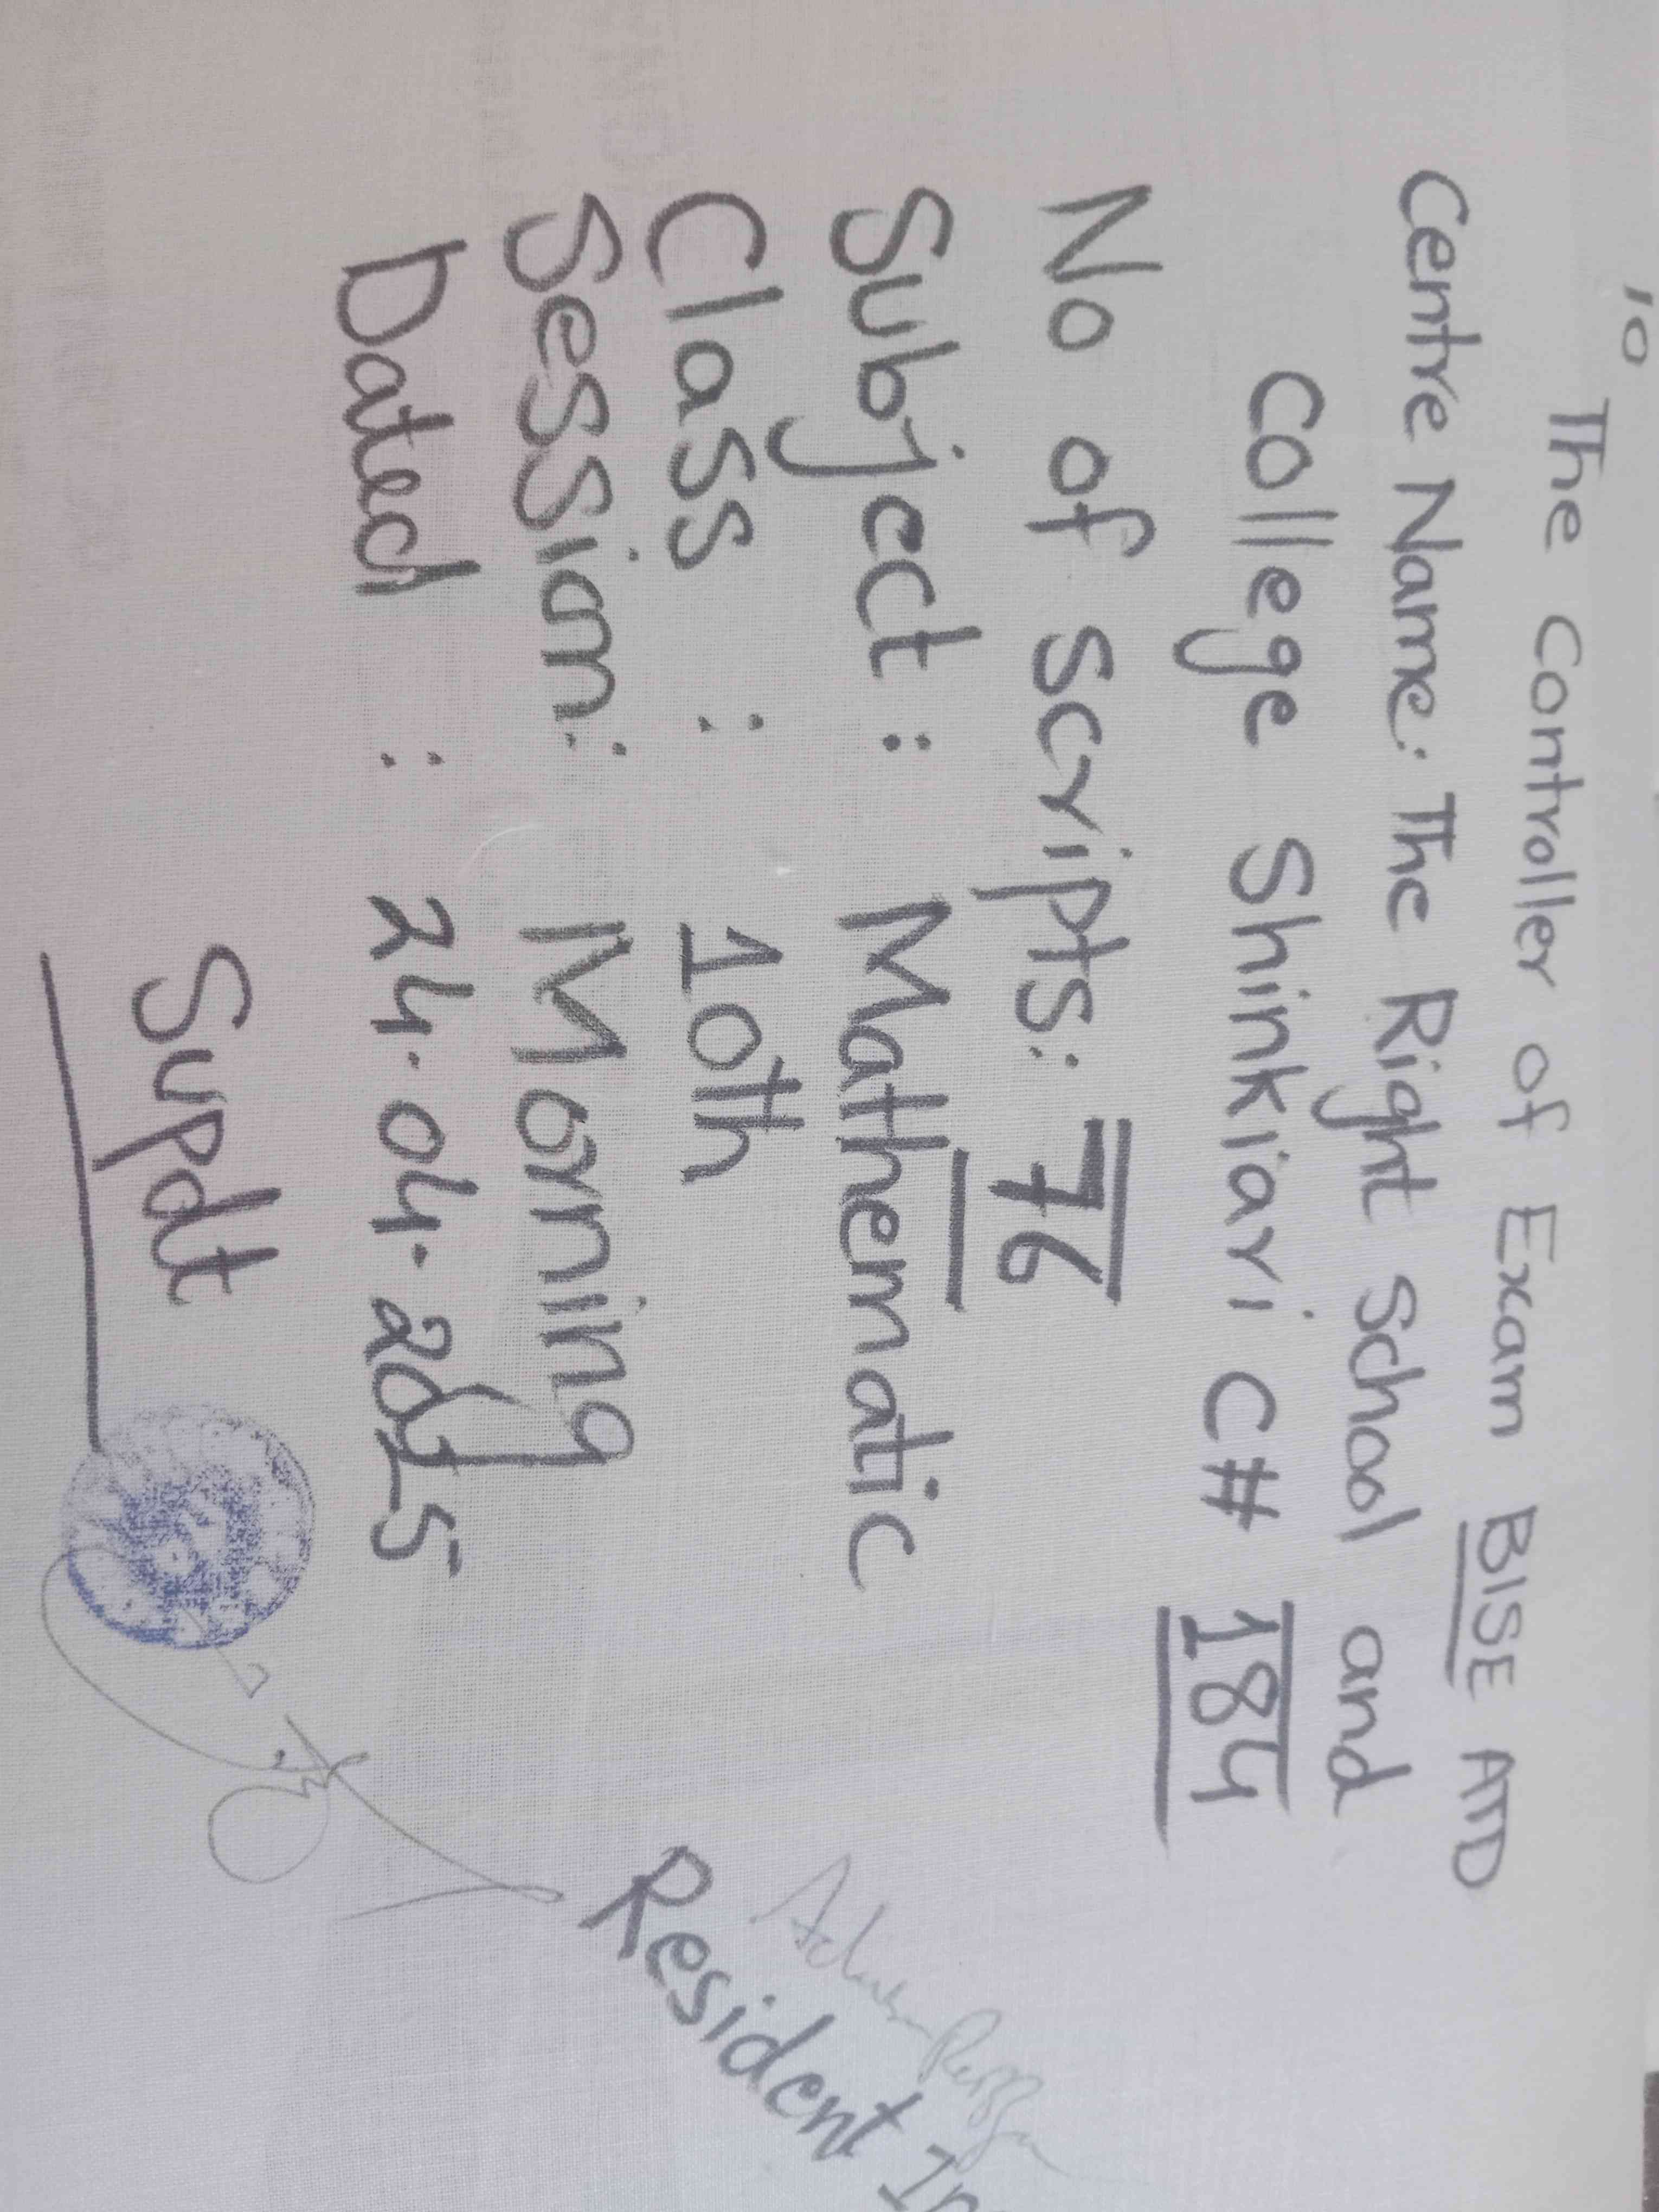 To
The Controller of Exam BISE ATD
Centre Name: The Right School and
College Shinkiari C# 184
No of Scripts: 76
Subject: Mathematic
Class : 10th
Session: Morning
Dated : 24.04.2025
Supdt
Resident